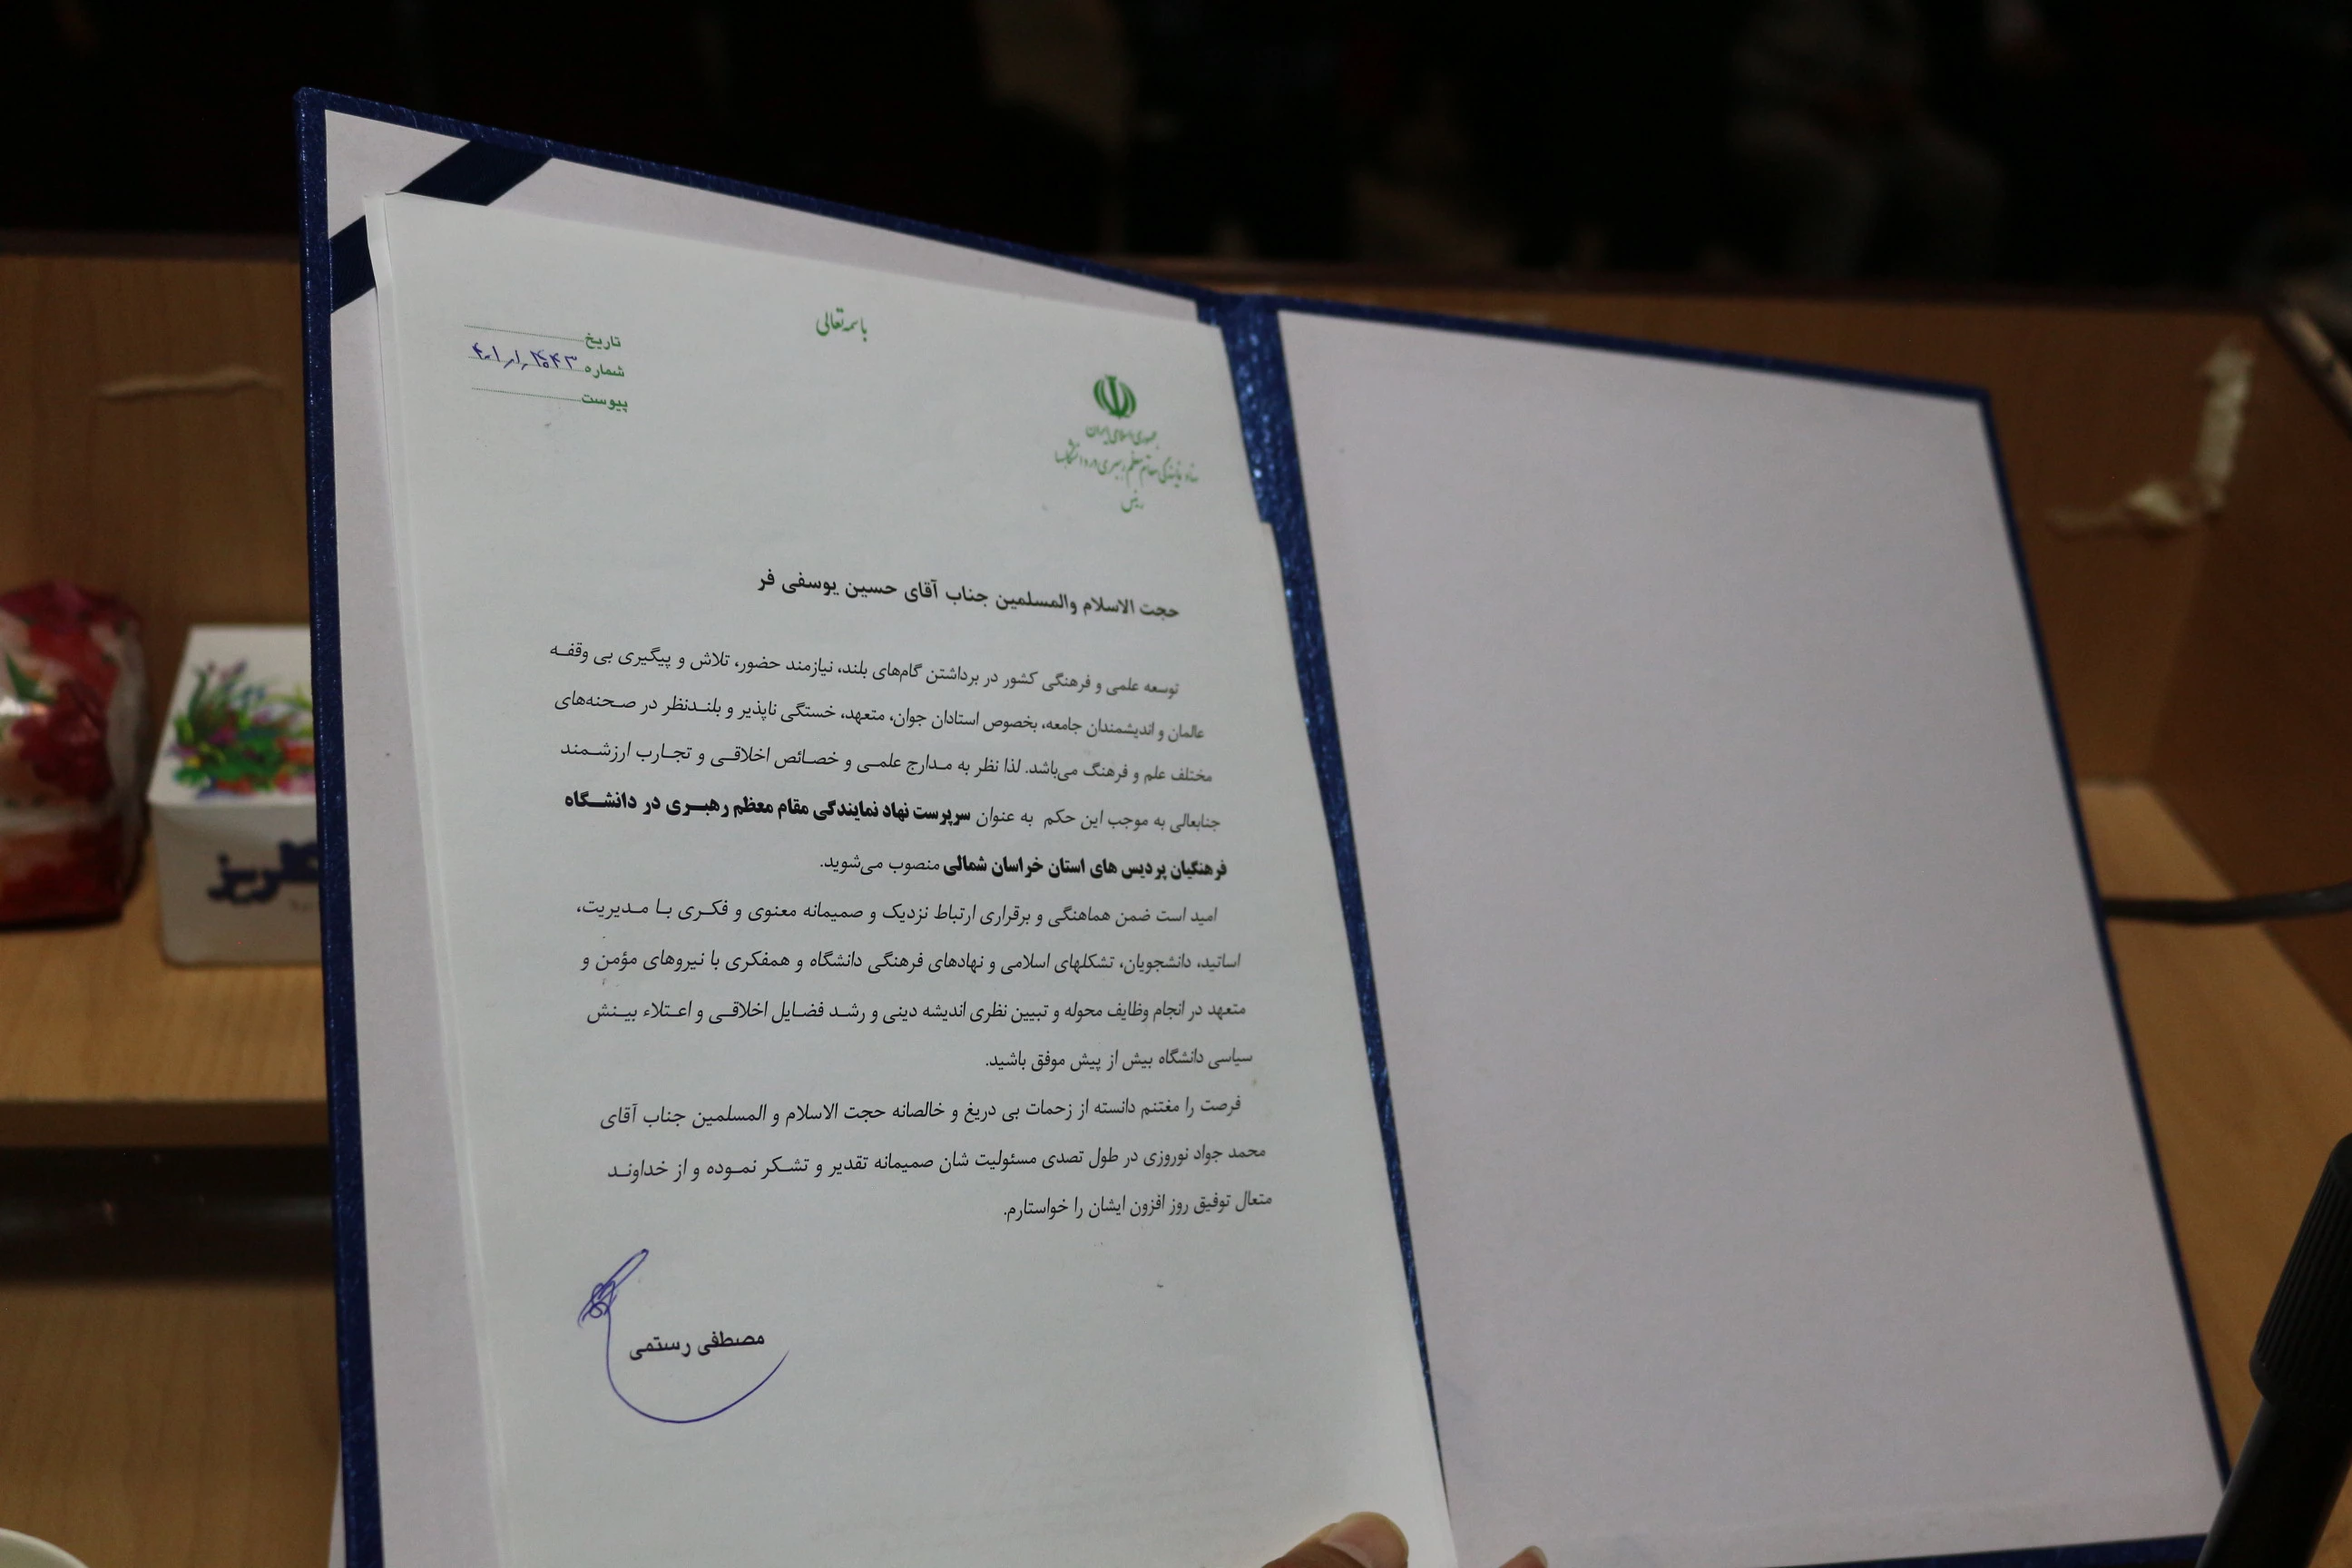 باسمه‌تعالی
تاریخ
شماره
پیوست
جمهوری اسلامی ایران
نهاد نمایندگی مقام معظم رهبری در دانشگاهها
رئیس
حجت الاسلام والمسلمین جناب آقای حسین یوسفی فر
توسعه علمی و فرهنگی کشور در برداشتن گام‌های بلند، نیازمند حضور، تلاش و پیگیری بی وقفه
عالمان و اندیشمندان جامعه، بخصوص استادان جوان، متعهد، خستگی ناپذیر و بلندنظر در صحنه‌های
مختلف علم و فرهنگ می‌باشد. لذا نظر به مدارج علمی و خصائص اخلاقی و تجارب ارزشمند
جنابعالی به موجب این حکم به عنوان سرپرست نهاد نمایندگی مقام معظم رهبری در دانشگاه
فرهنگیان پردیس های استان خراسان شمالی منصوب می‌شوید.
امید است ضمن هماهنگی و برقراری ارتباط نزدیک و صمیمانه معنوی و فکری با مدیریت،
اساتید، دانشجویان، تشکلهای اسلامی و نهادهای فرهنگی دانشگاه و همفکری با نیروهای مؤمن و
متعهد در انجام وظایف محوله و تبیین نظری اندیشه دینی و رشد فضایل اخلاقی و اعتلاء بینش
سیاسی دانشگاه بیش از پیش موفق باشید.
فرصت را مغتنم دانسته از زحمات بی دریغ و خالصانه حجت الاسلام و المسلمین جناب آقای
محمد جواد نوروزی در طول تصدی مسئولیت شان صمیمانه تقدیر و تشکر نموده و از خداوند
متعال توفیق روز افزون ایشان را خواستارم.
مصطفی رستمی